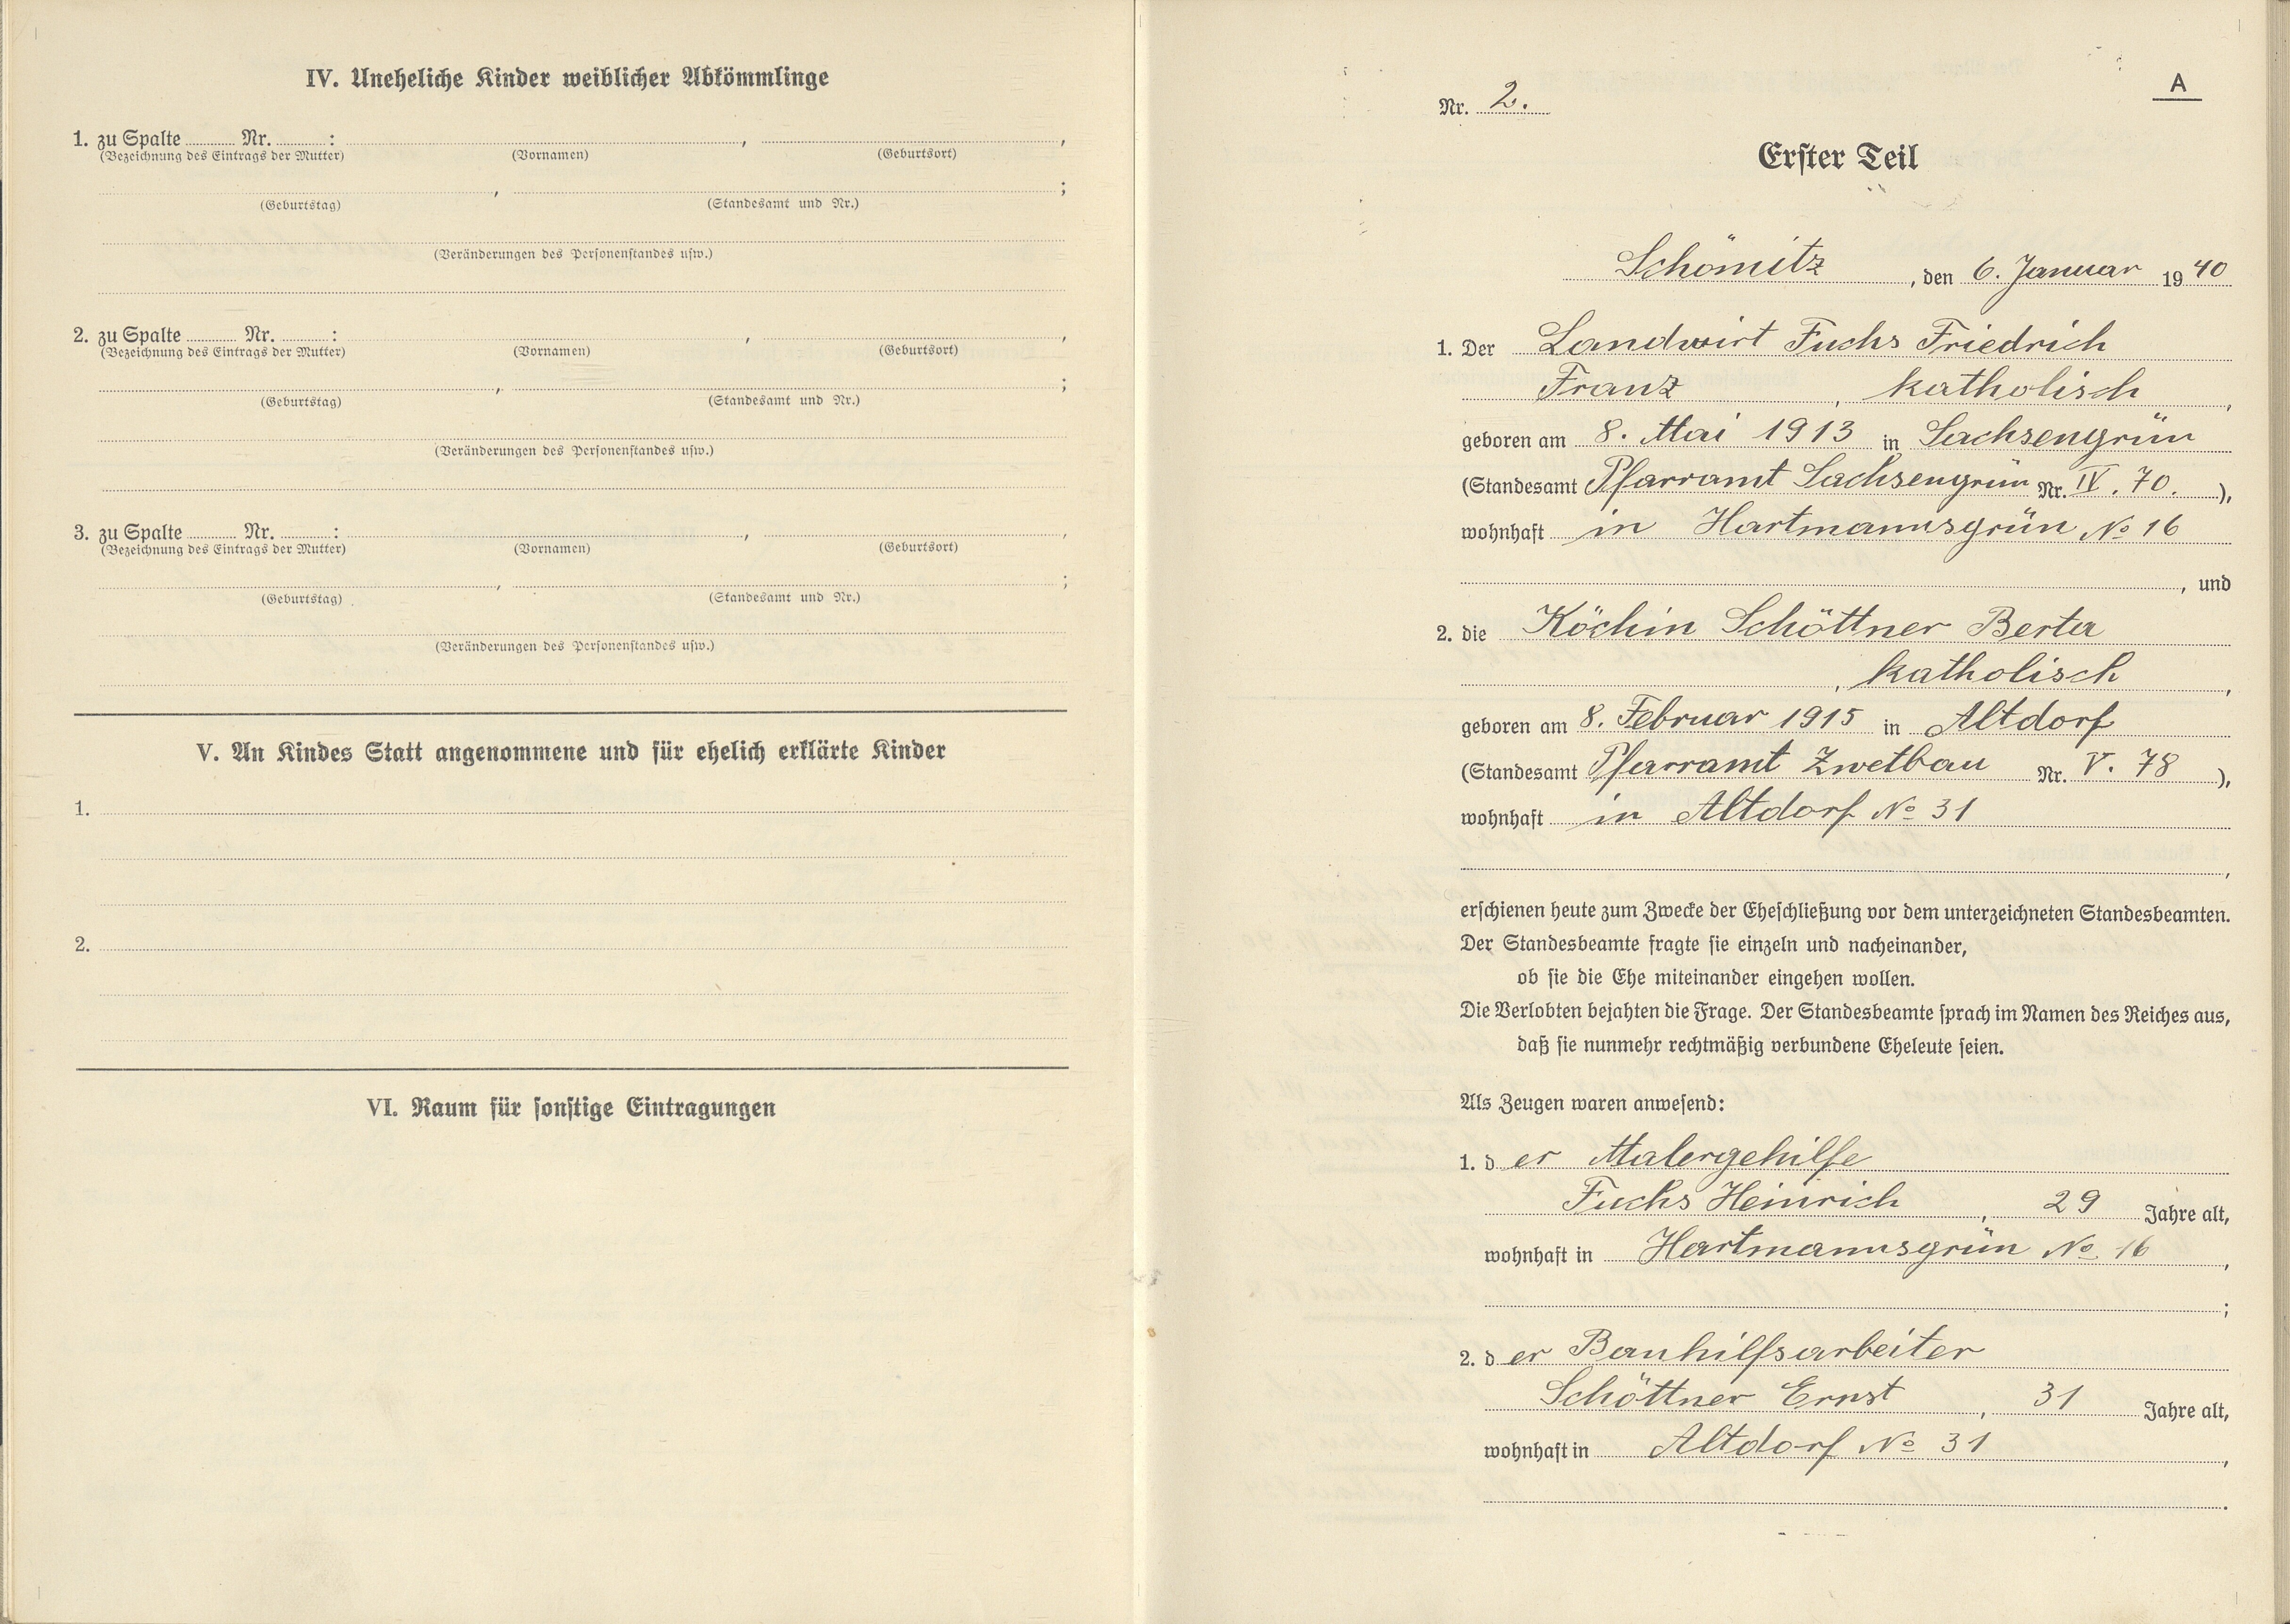 IV. Uneheliche Kinder weiblicher Abkömmlinge
1. zu Spalte ........ Nr. ........ : ........ , ........ ,
(Bezeichnung des Eintrags der Mutter) (Vornamen) (Geburtsort)
........ , ........ ;
(Geburtstag) (Standesamt und Nr.)
(Veränderungen des Personenstandes usw.)
2. zu Spalte ........ Nr. ........ : ........ , ........ ,
(Bezeichnung des Eintrags der Mutter) (Vornamen) (Geburtsort)
........ , ........ ;
(Geburtstag) (Standesamt und Nr.)
(Veränderungen des Personenstandes usw.)
3. zu Spalte ........ Nr. ........ : ........ , ........ ,
(Bezeichnung des Eintrags der Mutter) (Vornamen) (Geburtsort)
........ , ........ ;
(Geburtstag) (Standesamt und Nr.)
(Veränderungen des Personenstandes usw.)
V. An Kindes Statt angenommene und für ehelich erklärte Kinder
1.
2.
VI. Raum für sonstige Eintragungen
A
Nr. 2.
Erster Teil
Schömitz , den 6. Januar 1940
1. Der Landwirt Fuchs Friedrich
Franz , katholisch ,
geboren am 8. Mai 1913 in Sachsengrün
(Standesamt Pfarramt Sachsengrün Nr. IV. 70. ),
wohnhaft in Hartmannsgrün № 16
, und
2. die Köchin Schöttner Berta
, katholisch ,
geboren am 8. Februar 1915 in Altdorf
(Standesamt Pfarramt Zwetbau Nr. V. 78 ),
wohnhaft in Altdorf № 31
,
erschienen heute zum Zwecke der Eheschließung vor dem unterzeichneten Standesbeamten.
Der Standesbeamte fragte sie einzeln und nacheinander,
ob sie die Ehe miteinander eingehen wollen.
Die Verlobten bejahten die Frage. Der Standesbeamte sprach im Namen des Reiches aus,
daß sie nunmehr rechtmäßig verbundene Eheleute seien.
Als Zeugen waren anwesend:
1. d er Malergehilfe
Fuchs Heinrich , 29 Jahre alt,
wohnhaft in Hartmannsgrün № 16 ,
;
2. d er Bauhilfsarbeiter
Schöttner Ernst , 31 Jahre alt,
wohnhaft in Altdorf № 31 ,
.